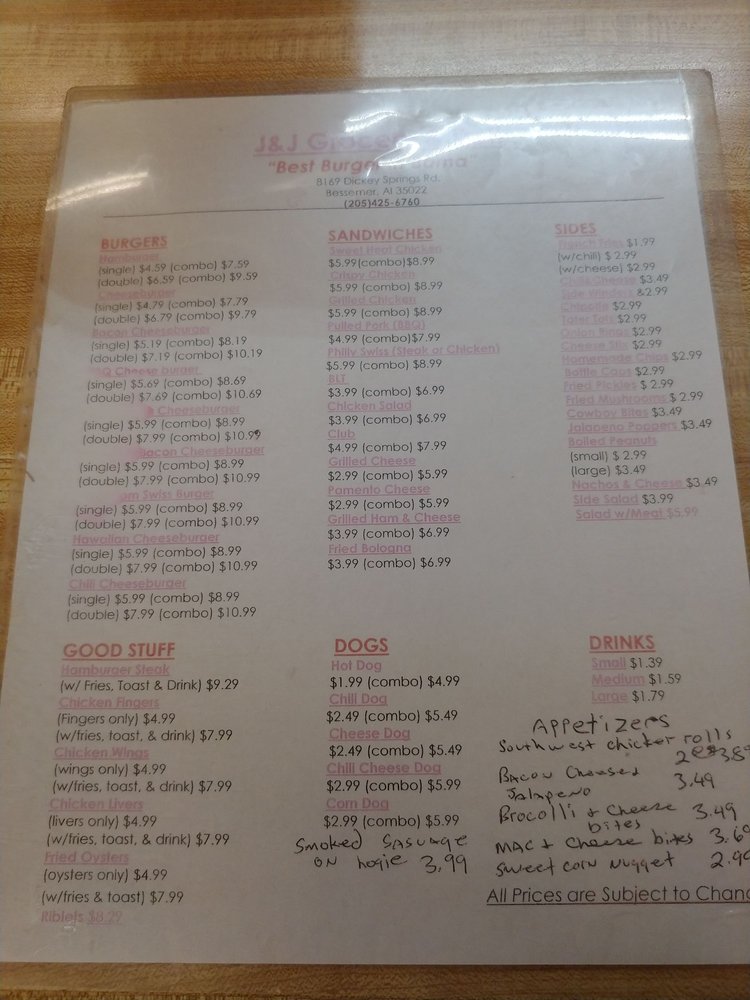 J&J Groce
"Best Burge
8169 Dickey Springs Rd.
Bessemer, Al 35022
(205)425-6760
BURGERS
Hamburger
(single) $4.59 (combo) $7.59
(double) $6.59 (combo) $9.59
Cheeseburger
(single) $4.79 (combo) $7.79
(double) $6.79 (combo) $9.79
Bacon Cheeseburger
(single) $5.19 (combo) $8.19
(double) $7.19 (combo) $10.19
Cheese burger
(single) $5.69 (combo) $8.69
(double) $7.69 (combo) $10.69
Cheeseburger
(single) $5.99 (combo) $8.99
(double) $7.99 (combo) $10.99
Bacon Cheeseburger
(single) $5.99 (combo) $8.99
(double) $7.99 (combo) $10.99
Swiss Burger
(single) $5.99 (combo) $8.99
(double) $7.99 (combo) $10.99
Hawaiian Cheeseburger
(single) $5.99 (combo) $8.99
(double) $7.99 (combo) $10.99
Chili Cheeseburger
(single) $5.99 (combo) $8.99
(double) $7.99 (combo) $10.99
SANDWICHES
Sweet Heat Chicken
$5.99(combo)$8.99
Crispy Chicken
$5.99 (combo) $8.99
Grilled Chicken
$5.99 (combo) $8.99
Pulled Pork (BBQ)
$4.99 (combo)$7.99
Philly Swiss (Steak or Chicken)
$5.99 (combo) $8.99
BLT
$3.99 (combo) $6.99
Chicken Salad
$3.99 (combo) $6.99
Club
$4.99 (combo) $7.99
Grilled Cheese
$2.99 (combo) $5.99
Pamento Cheese
$2.99 (combo) $5.99
Grilled Ham & Cheese
$3.99 (combo) $6.99
Fried Bologna
$3.99 (combo) $6.99
SIDES
French Fries $1.99
(w/chili) $ 2.99
(w/cheese) $2.99
Chili&Cheese $3.49
Side Winders &2.99
$2.99
Tater Tots $2.99
Onion Rings $2.99
Cheese Stix $2.99
Homemade Chips $2.99
Bottle Caps $2.99
Fried Pickles $ 2.99
Fried Mushrooms $ 2.99
Cowboy Bites $3.49
Jalapeno Poppers $3.49
Boiled Peanuts
(small) $ 2.99
(large) $3.49
Nachos & Cheese $3.49
Side Salad $3.99
Salad w/Meat $5.99
GOOD STUFF
Hamburger Steak
(w/ Fries, Toast & Drink) $9.29
Chicken Fingers
(Fingers only) $4.99
(w/fries, toast, & drink) $7.99
Chicken Wings
(wings only) $4.99
(w/fries, toast, & drink) $7.99
Chicken Livers
(livers only) $4.99
(w/fries, toast, & drink) $7.99
Fried Oysters
(oysters only) $4.99
(w/fries & toast) $7.99
Riblets $8.29
DOGS
Hot Dog
$1.99 (combo) $4.99
Chili Dog
$2.49 (combo) $5.49
Cheese Dog
$2.49 (combo) $5.49
Chili Cheese Dog
$2.99 (combo) $5.99
Corn Dog
$2.99 (combo) $5.99
Smoked Sasuage
on hogie 3.99
DRINKS
Small $1.39
Medium $1.59
Large $1.79
Appetizers
Southwest chicken rolls
Bacon Cheesed
Jalapeno 3.49
Brocolli & Cheese
bites 3.49
MAC & Cheese bites 3.6
Sweet corn nugget 2.9
All Prices are Subject to Chang